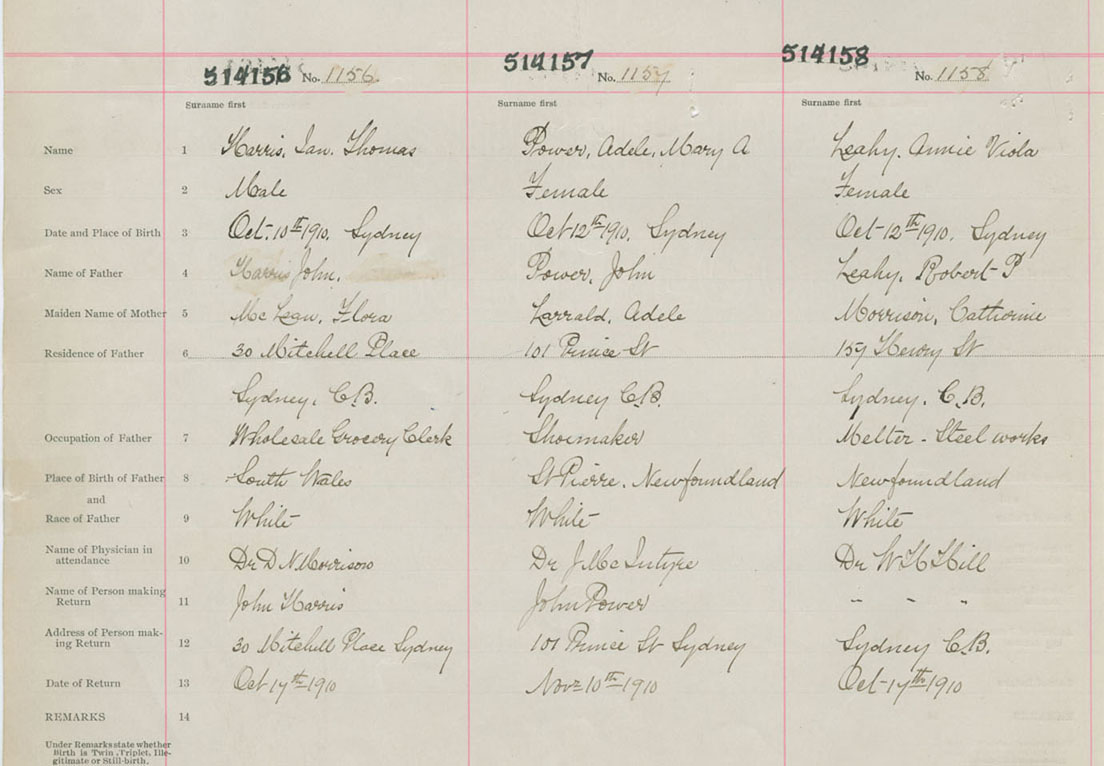 514156 No. 1156. 514157 No. 1157 514158 No. 1158
Surname first Surname first Surname first
Name 1 Harris, Ian. Thomas Power, Adele, Mary A Leahy. Annie Viola
Sex 2 Male Female Female
Date and Place of Birth 3 Oct. 10th 1910, Sydney Oct 12th 1910, Sydney Oct 12th 1910, Sydney
Name of Father 4 Harris John, Power, John Leahy, Robert P
Maiden Name of Mother 5 Mc Lean, Flora Larrald, Adele Morrison, Catherine
Residence of Father 6 30 Mitchell Place 101 Prince St 159 Henry St
Sydney, C.B. Sydney C.B. Sydney. C.B.
Occupation of Father 7 Wholesale Grocery Clerk Shoemaker Melter - Steel works
Place of Birth of Father 8 South Wales St Pierre, Newfoundland Newfoundland
and
Race of Father 9 White White White
Name of Physician in
attendance 10 Dr D N Morrison Dr J McIntyre Dr W H Hill
Name of Person making
Return 11 John Harris John Power " " "
Address of Person mak-
ing Return 12 30 Mitchell Place Sydney 101 Prince St Sydney Sydney C.B.
Date of Return 13 Oct 17th 1910 Nov 10th 1910 Oct 17th 1910
REMARKS 14
Under Remarks state whether
Birth is Twin, Triplet, Ille-
gitimate or Still-birth.